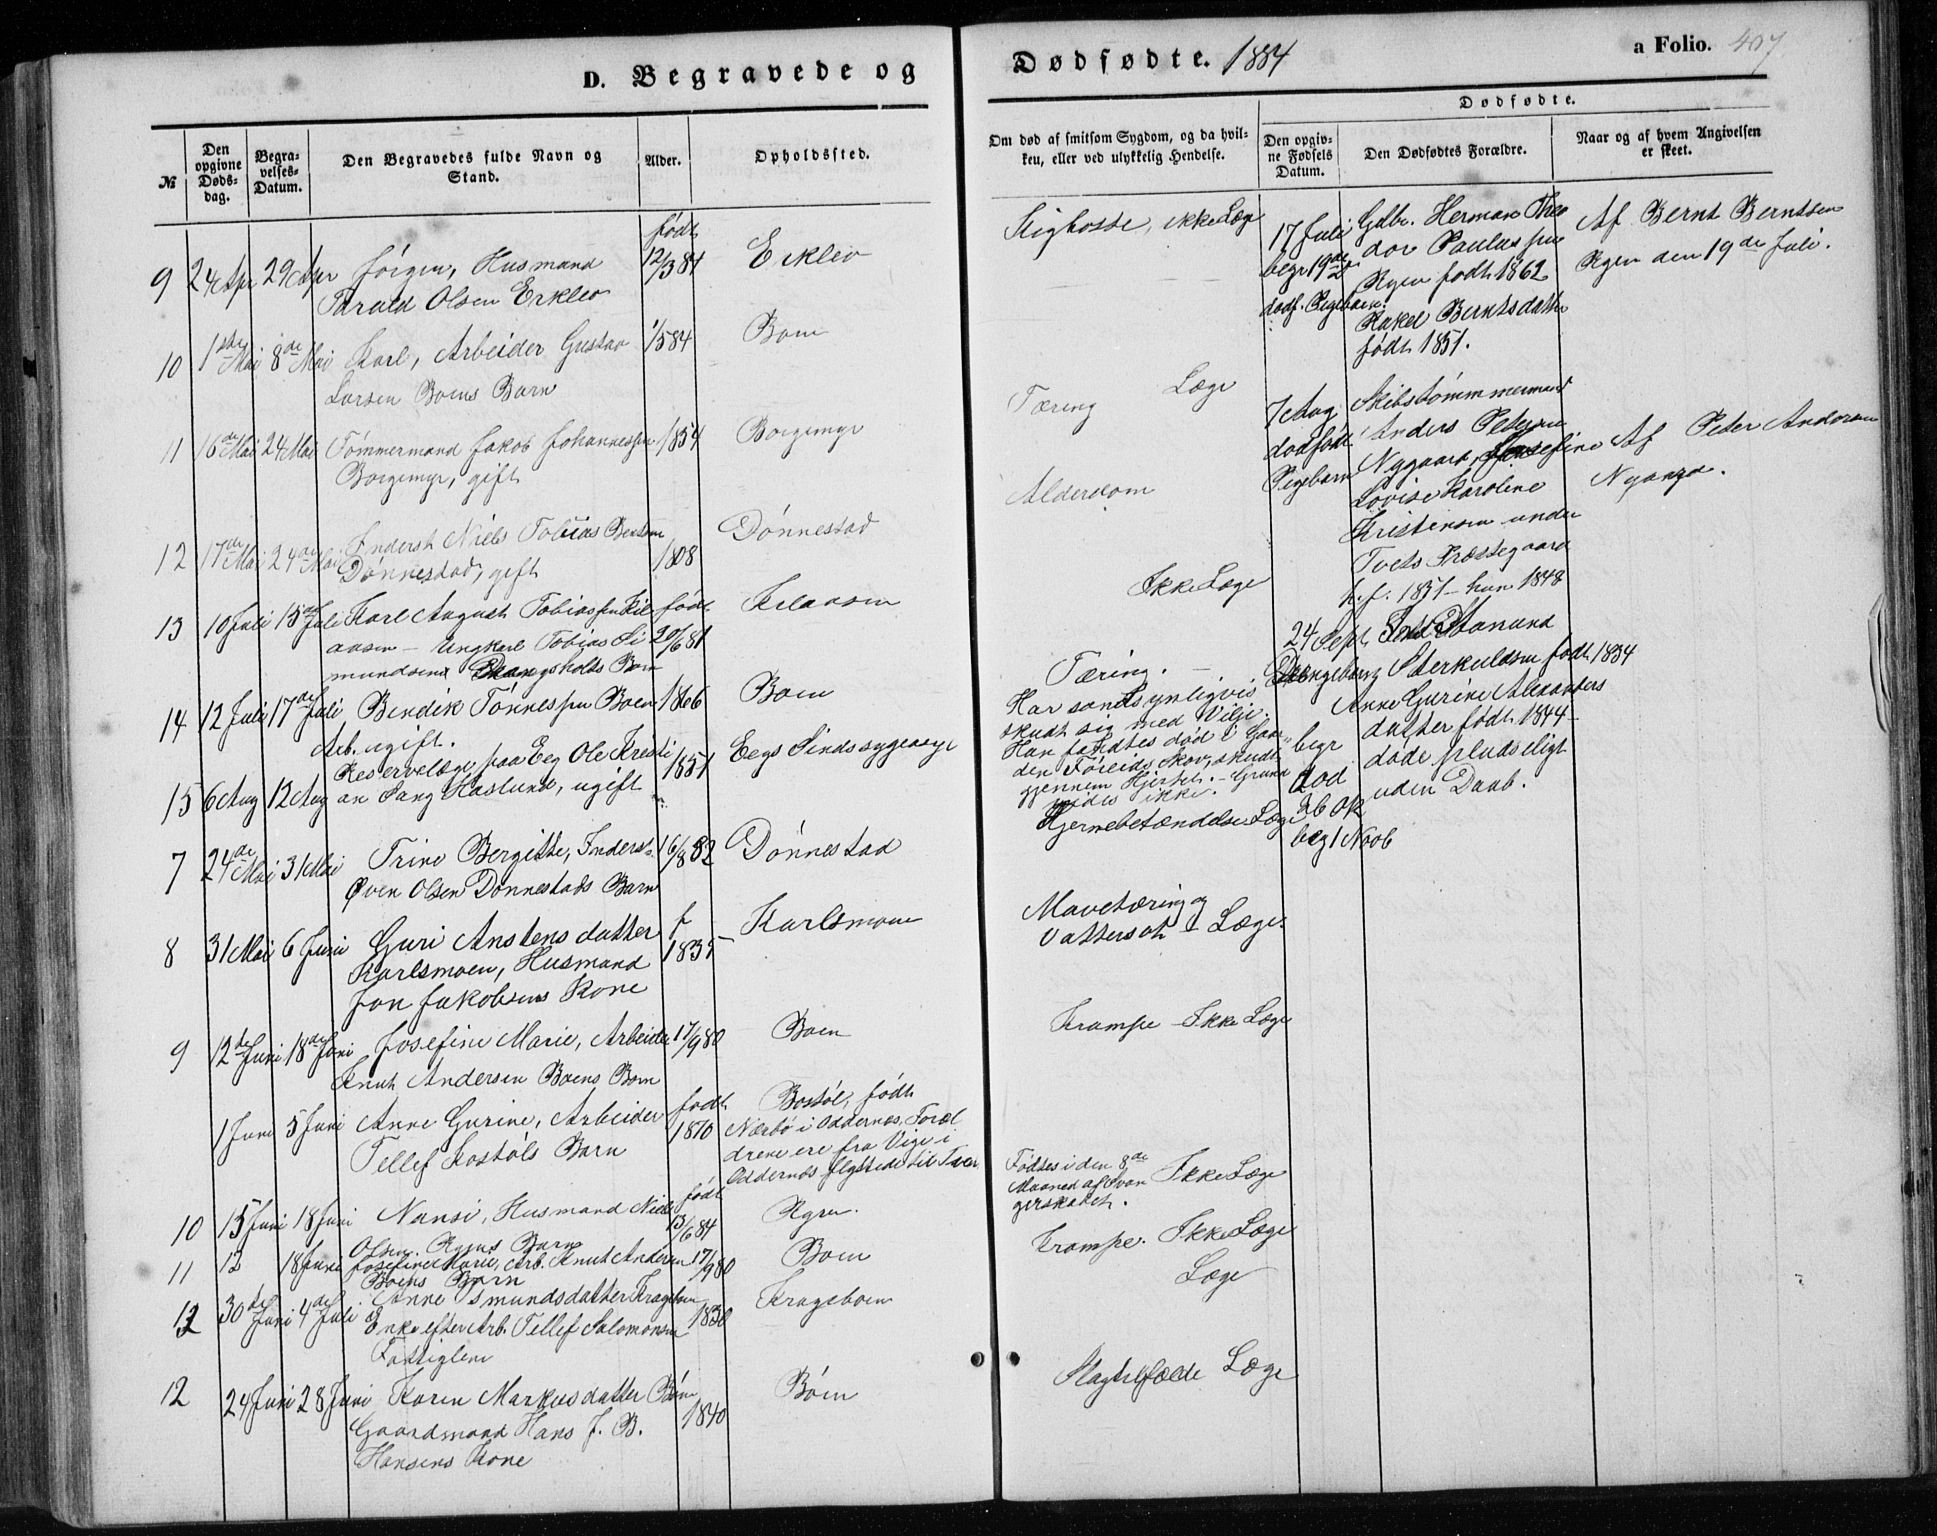 D. Begravede og
Dødfødte. 1884
a Folio. 407
№
Den opgivne Døds-dag.
Begra-velses-Datum.
Den Begravedes fulde Navn og Stand.
Alder.
Opholdssted.
Om død af smitsom Sygdom, og da hvil-
ken, eller ved ulykkelig Hendelse.
Dødfødte.
Den opgiv-ne Fødsels Datum.
Den Dødfødtes Forældre.
Naar og af hvem Angivelsen er skeet.
født
9 24 Apr 29 Apr Jörgen, Husmand 12/3 84 Erklev
Tarald Olsen Erklev
10 1ste Mai 8de Mai Karl, Arbeider Gustav 1/5 84 Boen
Larsen Boens Barn
11 16de Mai 24 Mai Tømmermand Jakob Johannessen 1854 Borgemyr
Borgemyr, gift
12 17de Mai 24de Mai Inderst Niels Tobias Bentsen 1808 Dønnestad
Dønnestad, gift
13 10 Juli 15de Juli Karl August Tobiassen Kil født Kilaasen
aasen – Ungkarl Tobias Si 20/6 81
mundsens Drangsholts Barn
14 12 Juli 17de Juli Bendik Tønnessen Boen 1866 Boen
Arb. ugift.
Reservelæge paa Eeg Ole Kristi Eegs Sindssygeasyl
15 6 Aug 12 Aug an Sang Haslund, ugift 1851
7 24de Mai 31 Mai Trine Bergitte, Inderst 16/8 82 Dønnestad
Even Olsen Dønnestads Barn
8 31 Mai 6 Juni Guri Anstensdatter f 1835 Karlsmoen
Karlsmoen, Husmand
Jon Jakobsens Kone
9 12te Juni 18de Juni Josefine Marie, Arbeider 17/9 80 Boen
Knut Andersen Boens Barn
1 Juni 5 Juni Anne Gurine, Arbeider født 1870 Bostøl, født
Tellef Bostøls Barn
Nærbø i Oddernes, Foræl
drene ere fra Vige i
Oddernes flyttede til Tvet
10 15 Juni 18 Juni Nansi, Husmand Niels født 13/6 84 Ryen.
Olsen Ryens Barn
11 12 18 Juni Josefine Marie, Arb. Knut Andersen 17/9 80 Boen
Boens Barn
12 30te Juni 4de Juli Anne Osmundsdatter Krageboen 1830 Krageboen
Enke efter Arb. Tellef Salomonsen
Fattiglem
12 24 Juni 28 Juni Karen Markusdatter Bøen 1840 Bøen
Gaardmand Hans J. B.
Hansens Kone
Kighoste, ikke Læge
Tæring Læge
Alderdom
Ikke Læge
Tæring. –
Har sandsynligvis
skudt sig med Vilje.
Han fandtes død i Gaar-
den Föreids Skov, skudt
gjennem Hjertet. – Grund
vides ikke.
Hjernebetændelse Læge
Mavetæring og
Vattersot – Læge.
Krampe – Ikke Læge
Fødtes i den 8de
Maaned af Svan
gerskabet. Ikke Læge
Krampe. Ikke Læge
Læge
Slagtilfælde Læge
17 Juli
begr 19de
dødf. Pigebarn.
Gdbr. Herman Theo
dor Paulussen
Ryen født 1862
Rakel Berntsdatter
født 1851.
Af Bernt Berntsen
Ryen den 19de Juli.
7 Aug
dødfødt
Pigebarn
Skibstømmermand
Anders Petersen
Nygaard, Josefine
Lovise Karoline
Kristensen under
Tvets Præstegaard
h. f. 1851 – hun 1848
Af Peter Andersen
Nygaard.
24 Sept
Drengebarn
Osmund
Sterkuldsen født 1834
Anne Gurine Alexanders
datter født 1844 –
døde pludseligt
uden Daab.
begr
død
26 Ok
beg 1 Novb